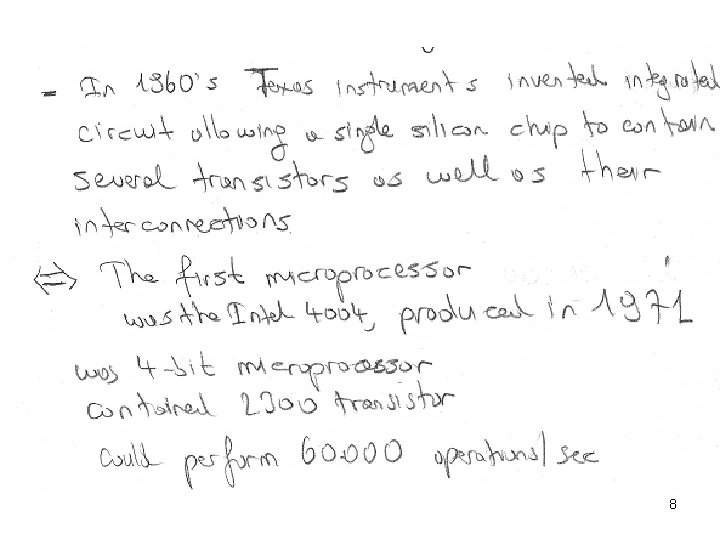 - In 1960's Texas instruments invented integrated
circuit allowing a single silicon chip to contain
several transistors as well as their
interconnections
⇔ The first microprocessor
was the Intel 4004, produced in 1971
was 4-bit microprocessor
contained 2300 transistor
could perform 60.000 operations/sec
8